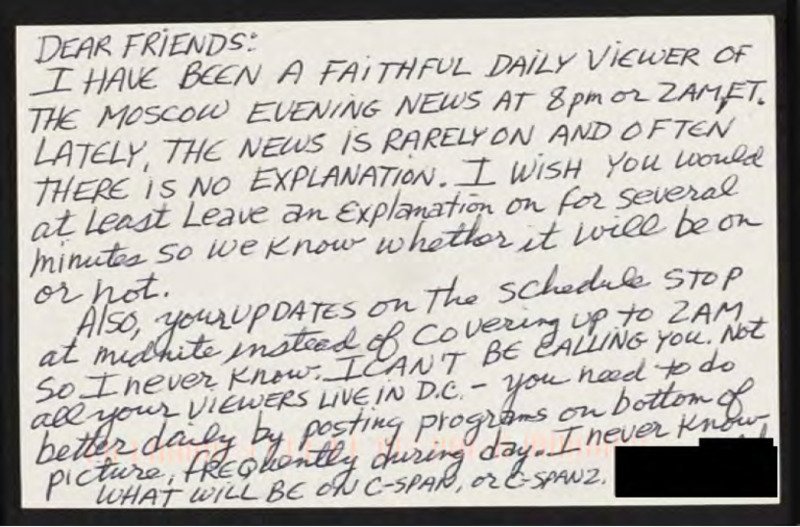 DEAR FRIENDS:
I HAVE BEEN A FAITHFUL DAILY VIEWER OF
THE MOSCOW EVENING NEWS AT 8pm or 2AM,ET.
LATELY, THE NEWS IS RARELY ON AND OFTEN
THERE IS NO EXPLANATION. I WISH YOU would
at Least Leave an Explanation on for several
minutes so we know whether it will be on
or not.
Also, your UPDATES on the schedule STOP
at midnite instead of covering up to 2AM
so I never know. I CAN'T BE CALLING YOU. Not
all your VIEWERS LIVE IN D.C. - you need to do
better daily by posting programs on bottom of
picture, FREQuently during day. I never know
WHAT WILL BE ON C-SPAN, or C-SPAN2.